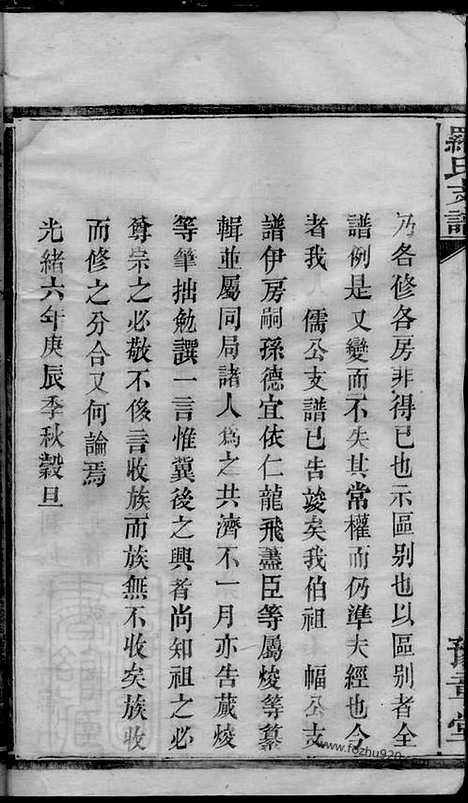 羅氏支譜
豫章堂
乃各修各房非得已也示區别也以區别者全
譜例是又變而不失其常權而仍準夫經也今
者我 儒公支譜已告竣矣我伯祖 幅公支
譜伊房嗣孫德宜依仁龍飛藎臣等屬焌等纂
輯並屬同局諸人爲之共濟不一月亦告蕆焌
等筆拙勉譔一言惟冀後之興者尚知祖之必
尊宗之必敬不俊言收族而族無不收矣族收
而修之分合又何論焉
光緒六年庚辰季秋穀旦
www.fozhu920.com